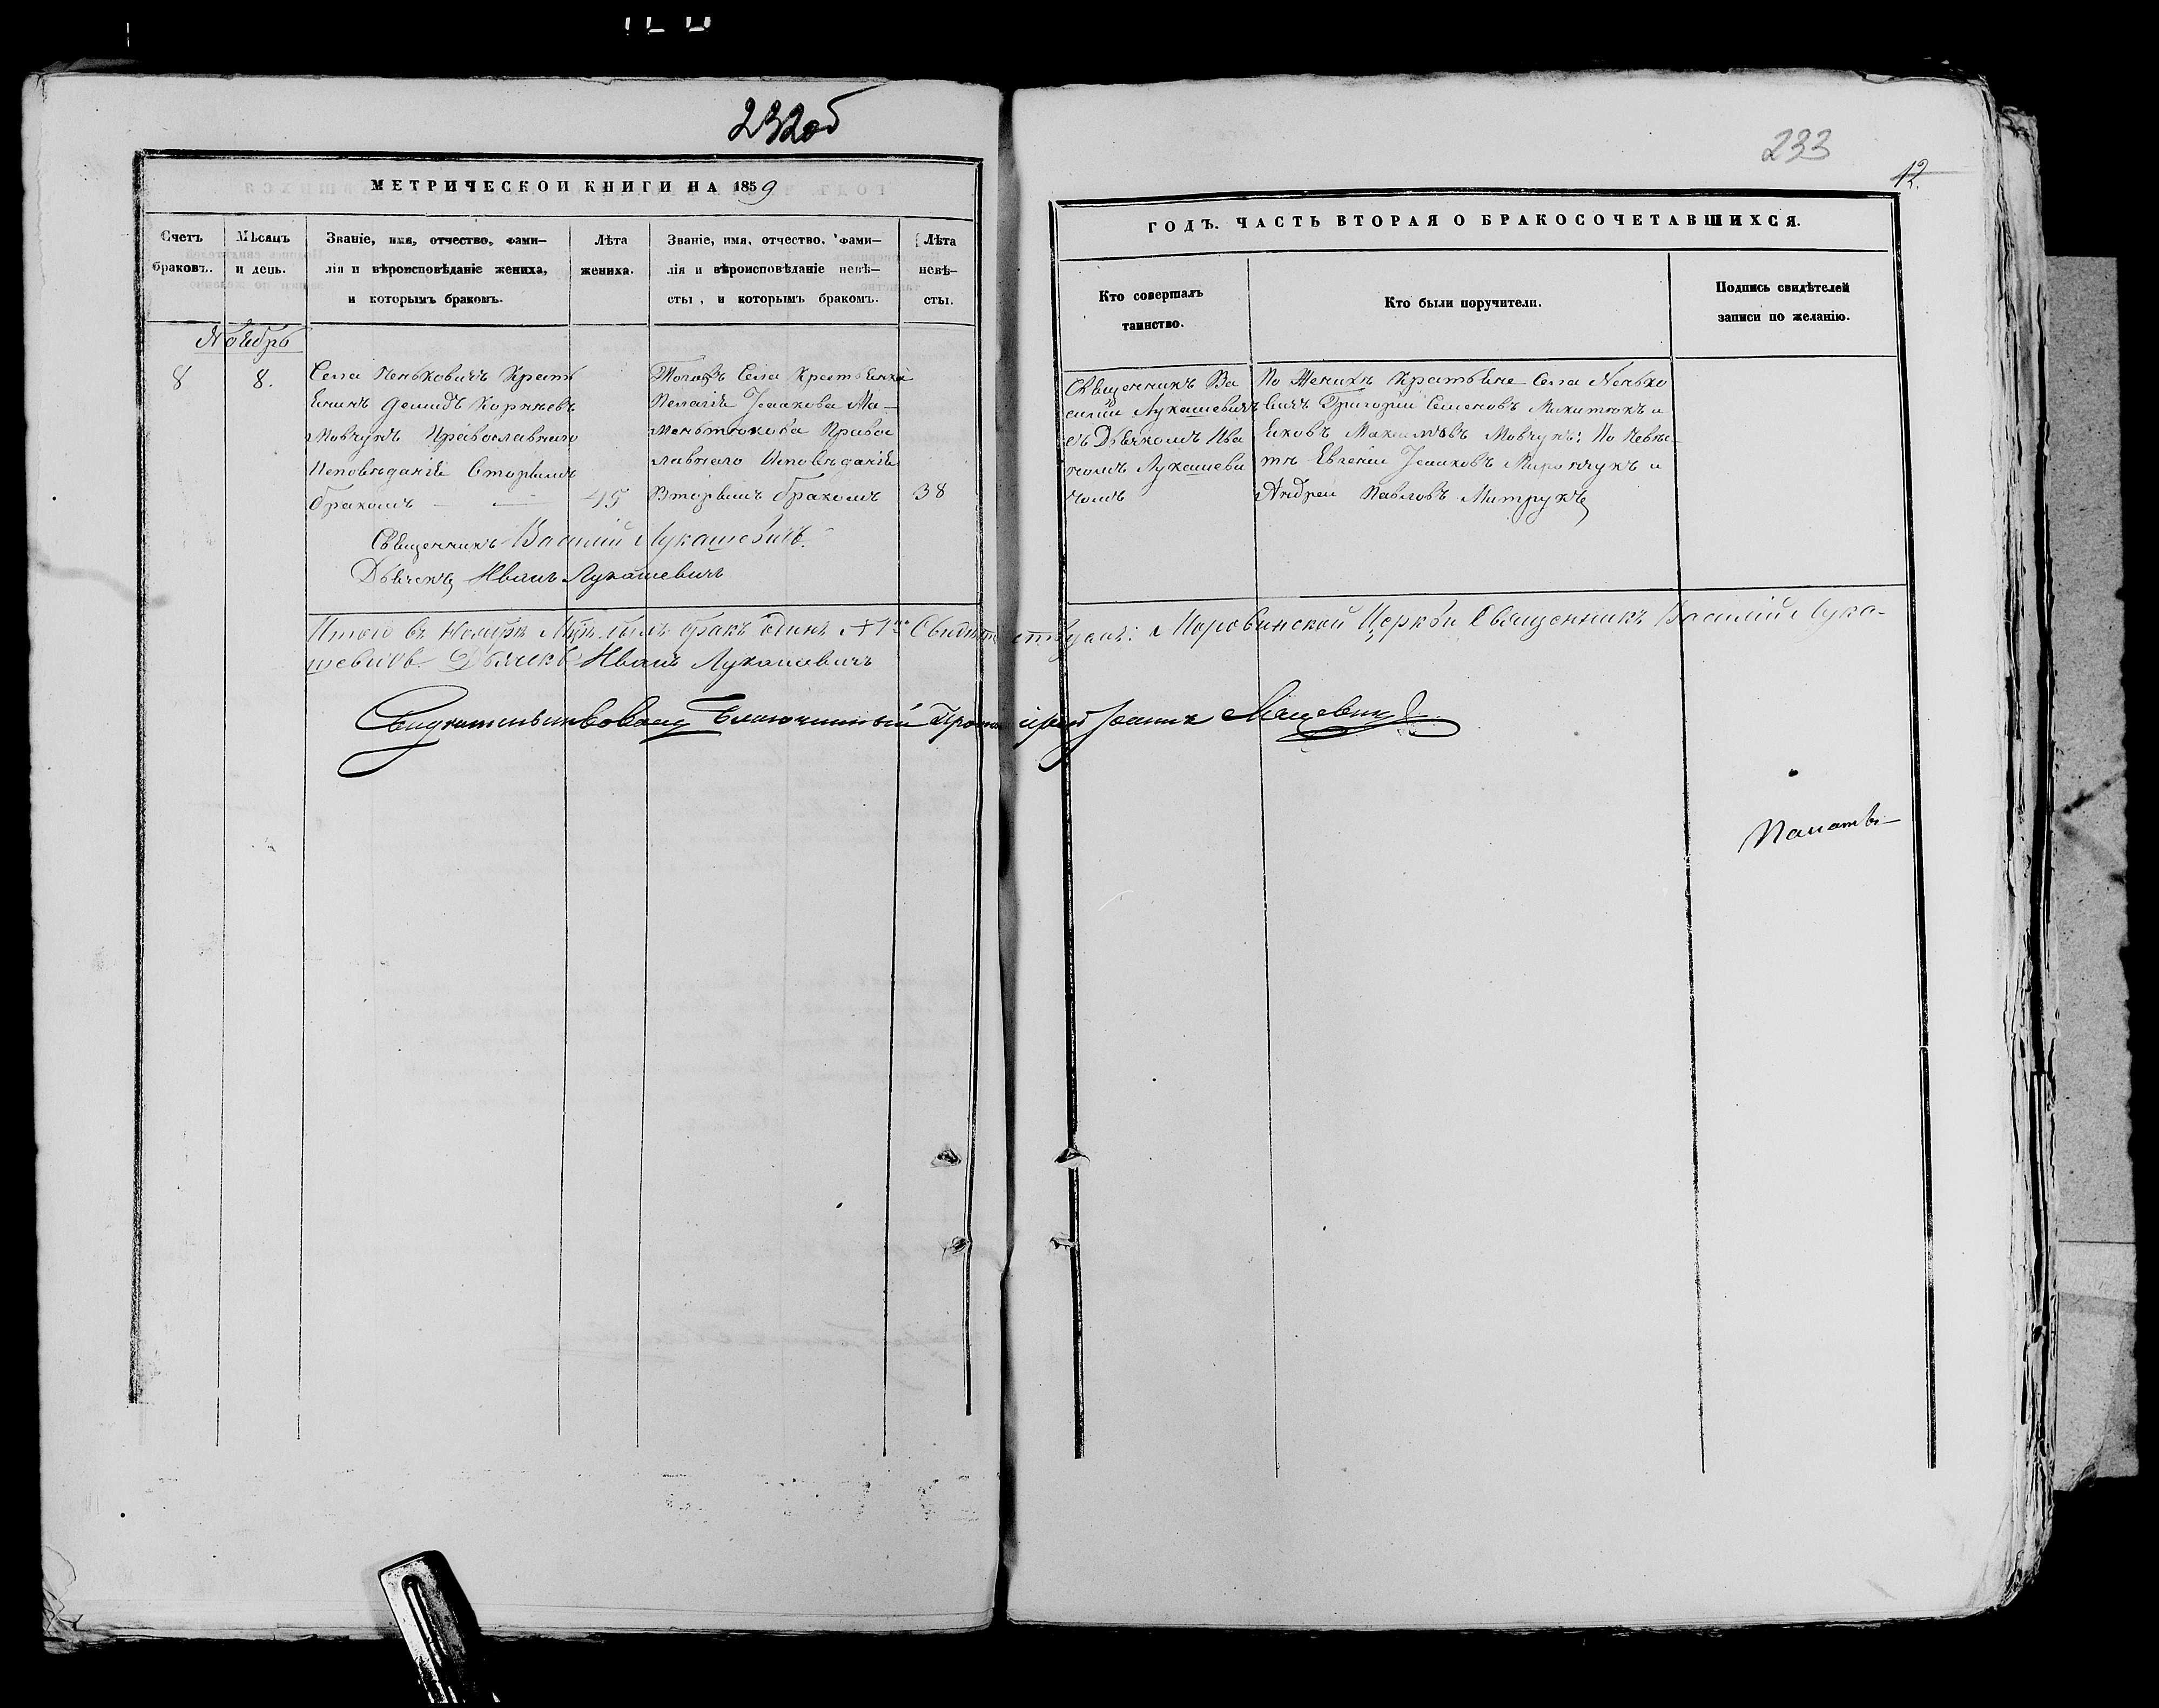 232об
МЕТРИЧЕСКОИ КНИГИ НА 1859
Счетъ браковъ.
Мѣсяцъ и день.
Званіе, имя, отчество, фами-
лія и вѣроисповѣданіе жениха,
и которымъ бракомъ.
Лѣта жениха.
Званіе, имя, отчество, фами-
лія и вѣроисповѣданіе невѣ-
сты, и которымъ бракомъ.
Лѣта невѣ-
сты.
Ноябрь
8
8.
Села Пеньковичъ Кресть
янинъ Демидъ Корнѣевъ
Мовчукъ Православнаго
Исповѣданія Вторымъ
бракомъ
45
Тогожъ Села Крестьянка
Пелагія Исаакова Ма-
Православнаго Исповѣданія
Вторымъ бракомъ
38
Священникъ Василій Лукашевичъ.
Дьячекъ Иванъ Лукашевичъ
Итого въ Ноябрѣ Мцѣ былъ бракъ одинъ № 1й Свидѣтельствуемъ: Моровинской Церкви Священникъ Василій Лука-
шевичъ Дьячекъ Иванъ Лукашевичъ
Свидѣтельствовалъ Благочинный Протоіерей Іоаннъ
233
12.
ГОДЪ. ЧАСТЬ ВТОРАЯ О БРАКОСОЧЕТАВШИХСЯ.
Кто совершалъ
таинство.
Кто были поручители.
Подпись свидѣтелей
записи по желанію.
Священникъ Ва
силій Лукашевичъ
съ Дьячкомъ Ива
номъ Лукашеви
чомъ
По Женихѣ Крестьяне Села Пенько
вичъ Григорій Семеновъ Микитюкъ и
Яковъ Максимовъ Мовчукъ; По Невѣс-
тѣ Евгеній Исааковъ Мирончукъ и
Андрей Павловъ Митрукъ
Палаты